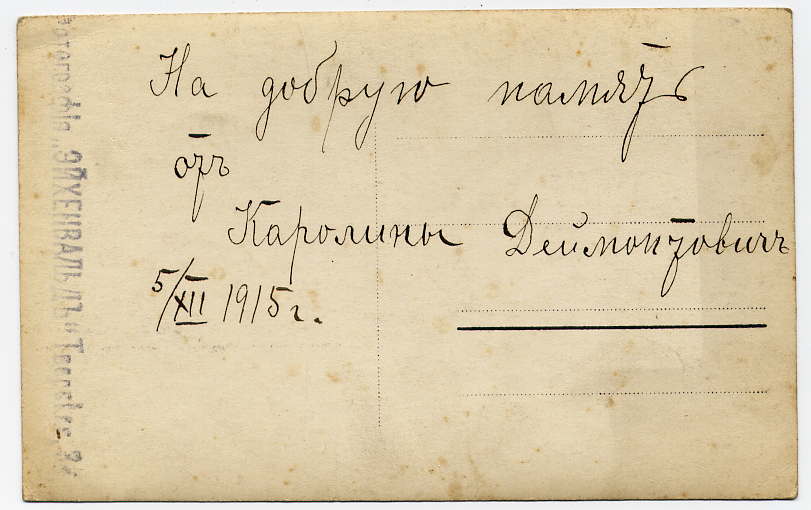 На добрую память
отъ
Каролины Деймонтовичъ
5/XII 1915 г.
Фотографія „ЭЙХЕНВАЛЬДЪ“